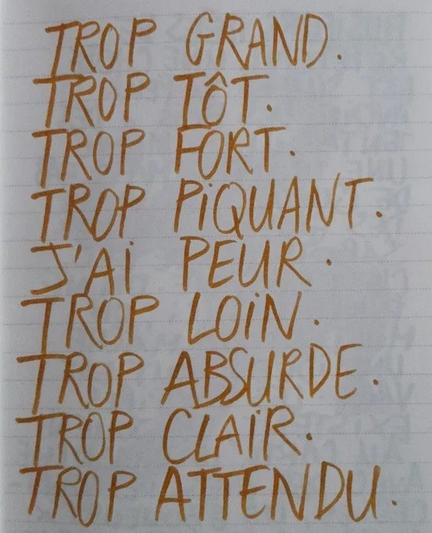 TROP GRAND.
TROP TÔT.
TROP FORT.
TROP PiQUANT.
J'Ai PEUR.
TROP LOiN.
TROP ABSURDE.
TROP CLAiR.
TROP ATTENDU.